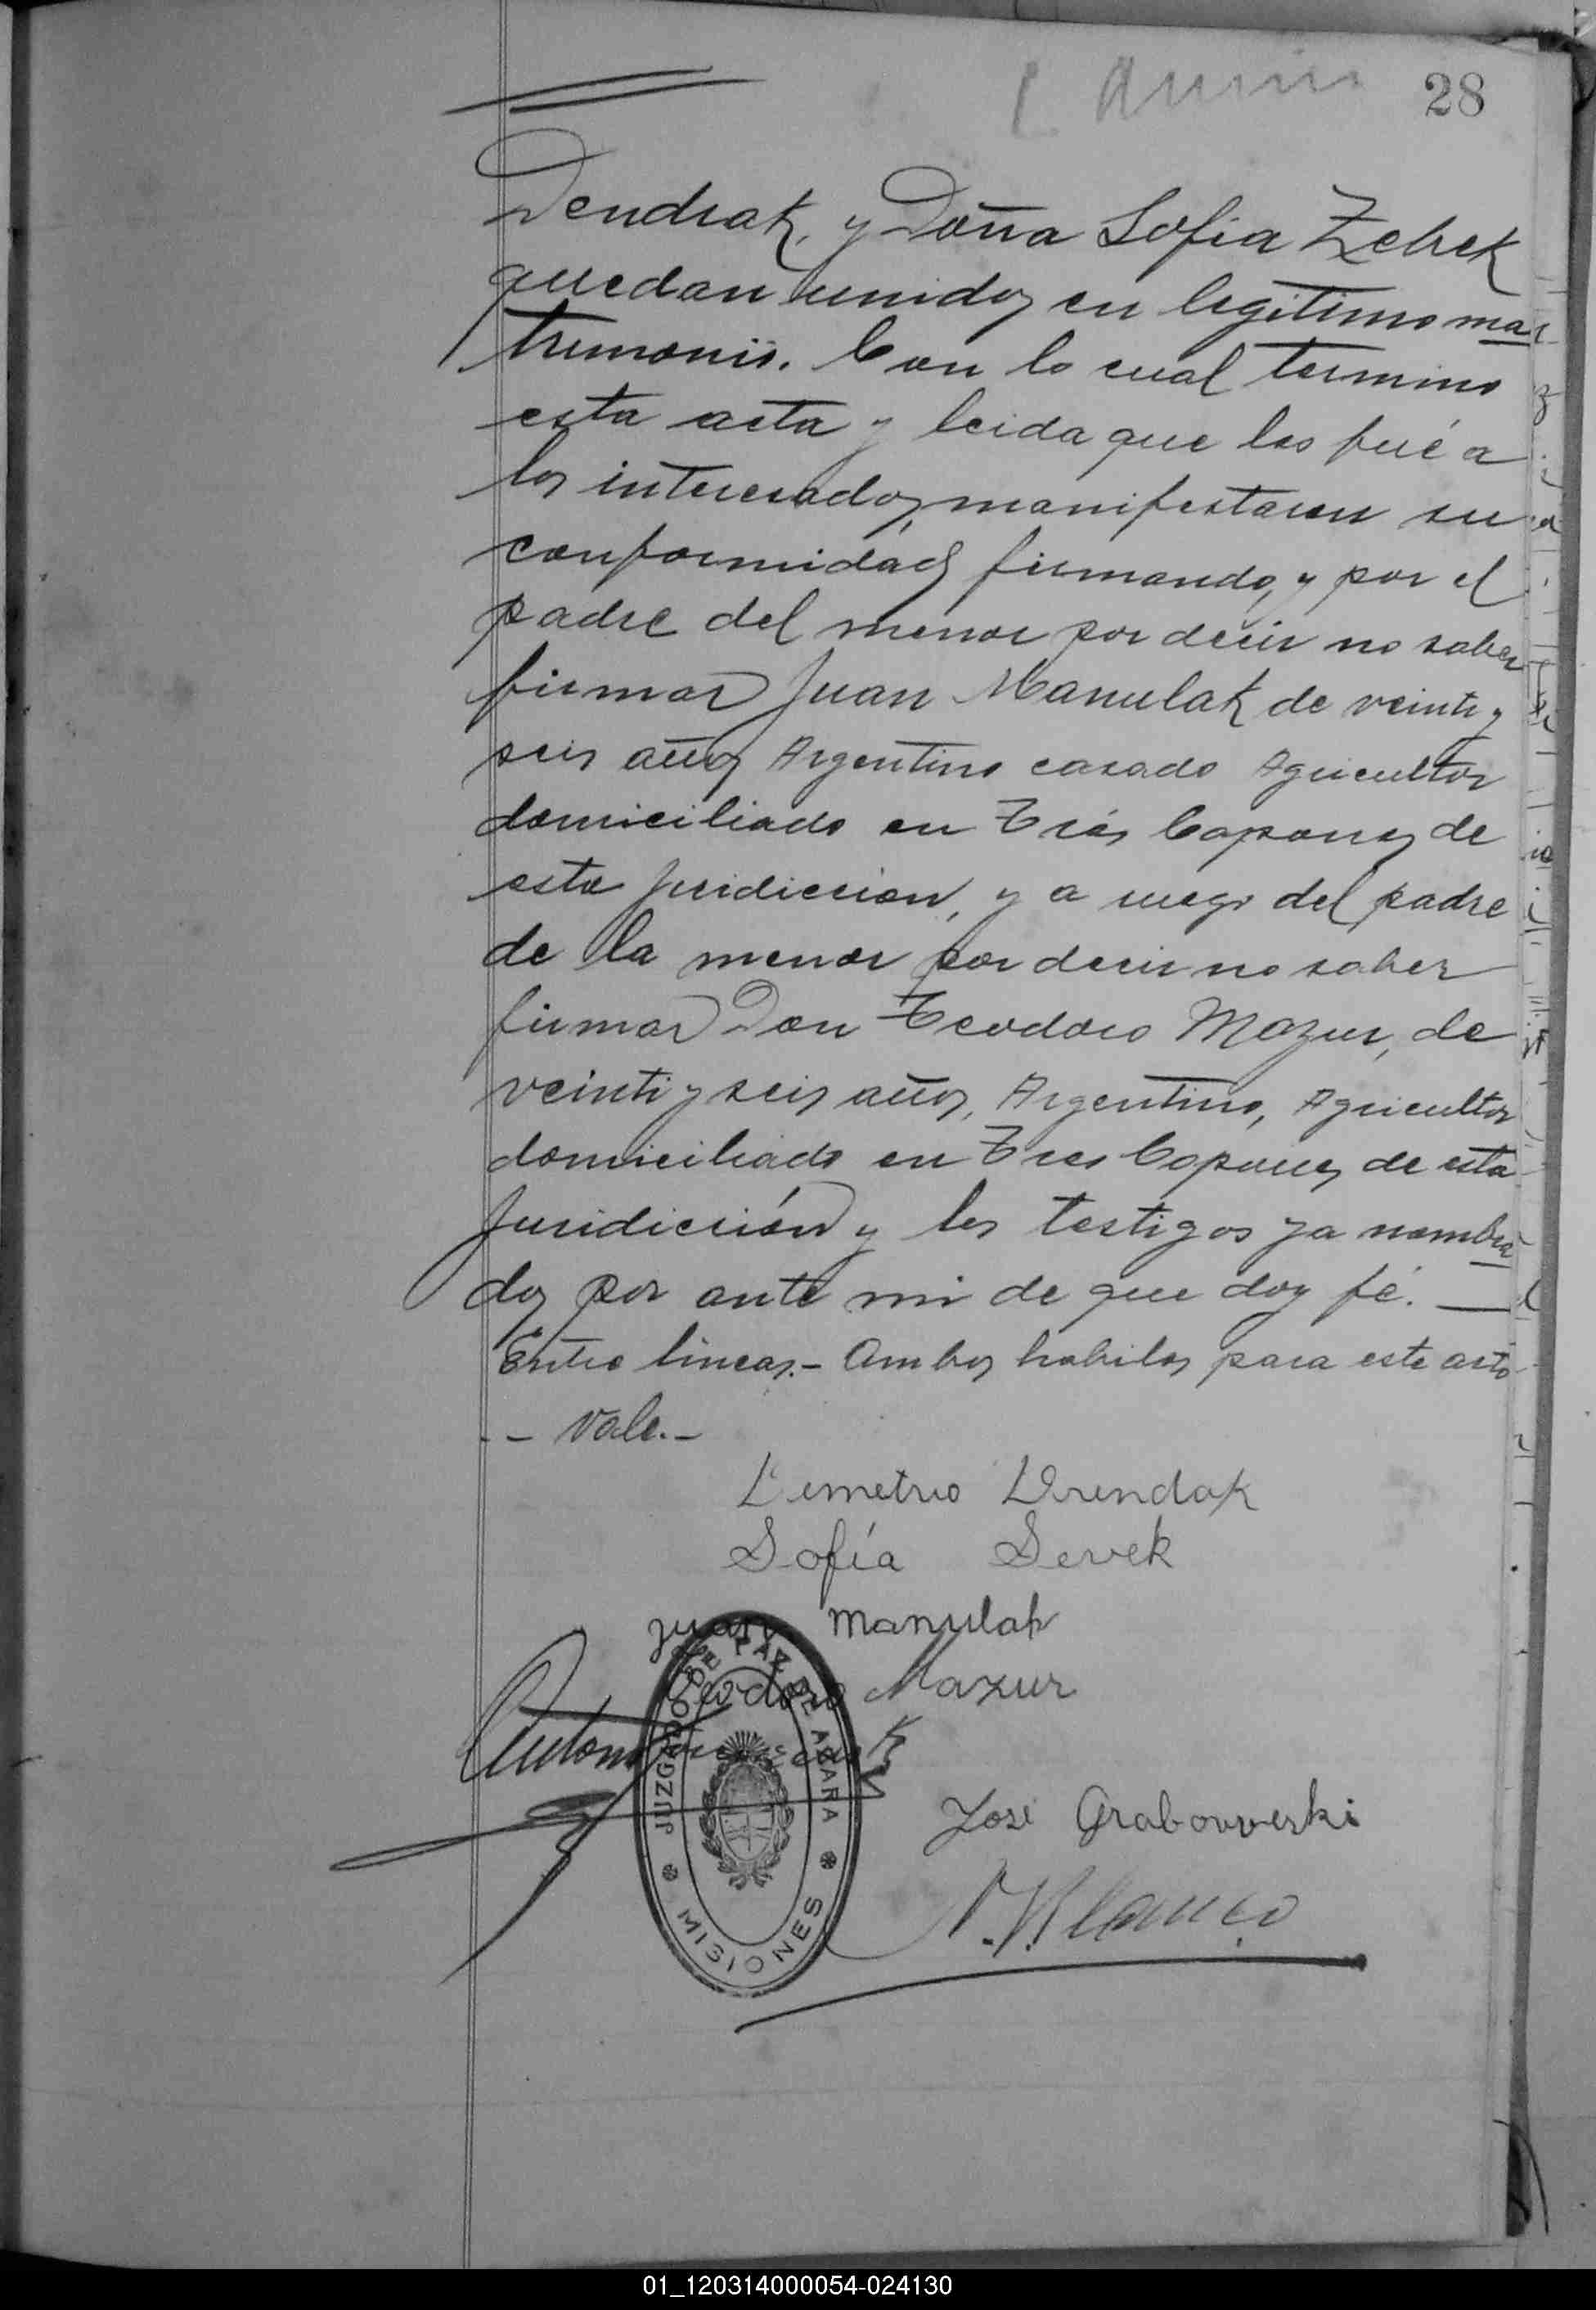 28
Dendrak, y Doña Sofia Zebek
quedan unidos en legitimo ma
trimonio. Con lo cual termino
esta acta y leida que les fué a
los interesados, manifestaron su
conformidad firmando, y por el
padre del menor por decir no saber
firmar Juan Manulak de veinti y
seis años Argentino casado Agricultor
domiciliado en Trés Capones de
esta juridiccion, y a ruego del padre
de la menor por decir no saber
firmar Don Teodoro Mazur, de
veinti y seis años, Argentino, Agricultor
domiciliado en Tres Capones de esta
Juridicción y los testigos ya nombra
dos por ante mi de que doy fé.
Entre lineas.- Ambos habiles para este acto
- - Vale.-
Demetrio Drendak
Sofía Sevek
Juan Manulak
Teodoro Mazur
Antonio
José Grabovveski
N. Blanco
JUZGADO DE PAZ DE AZARA
MISIONES
01_120314000054-024130